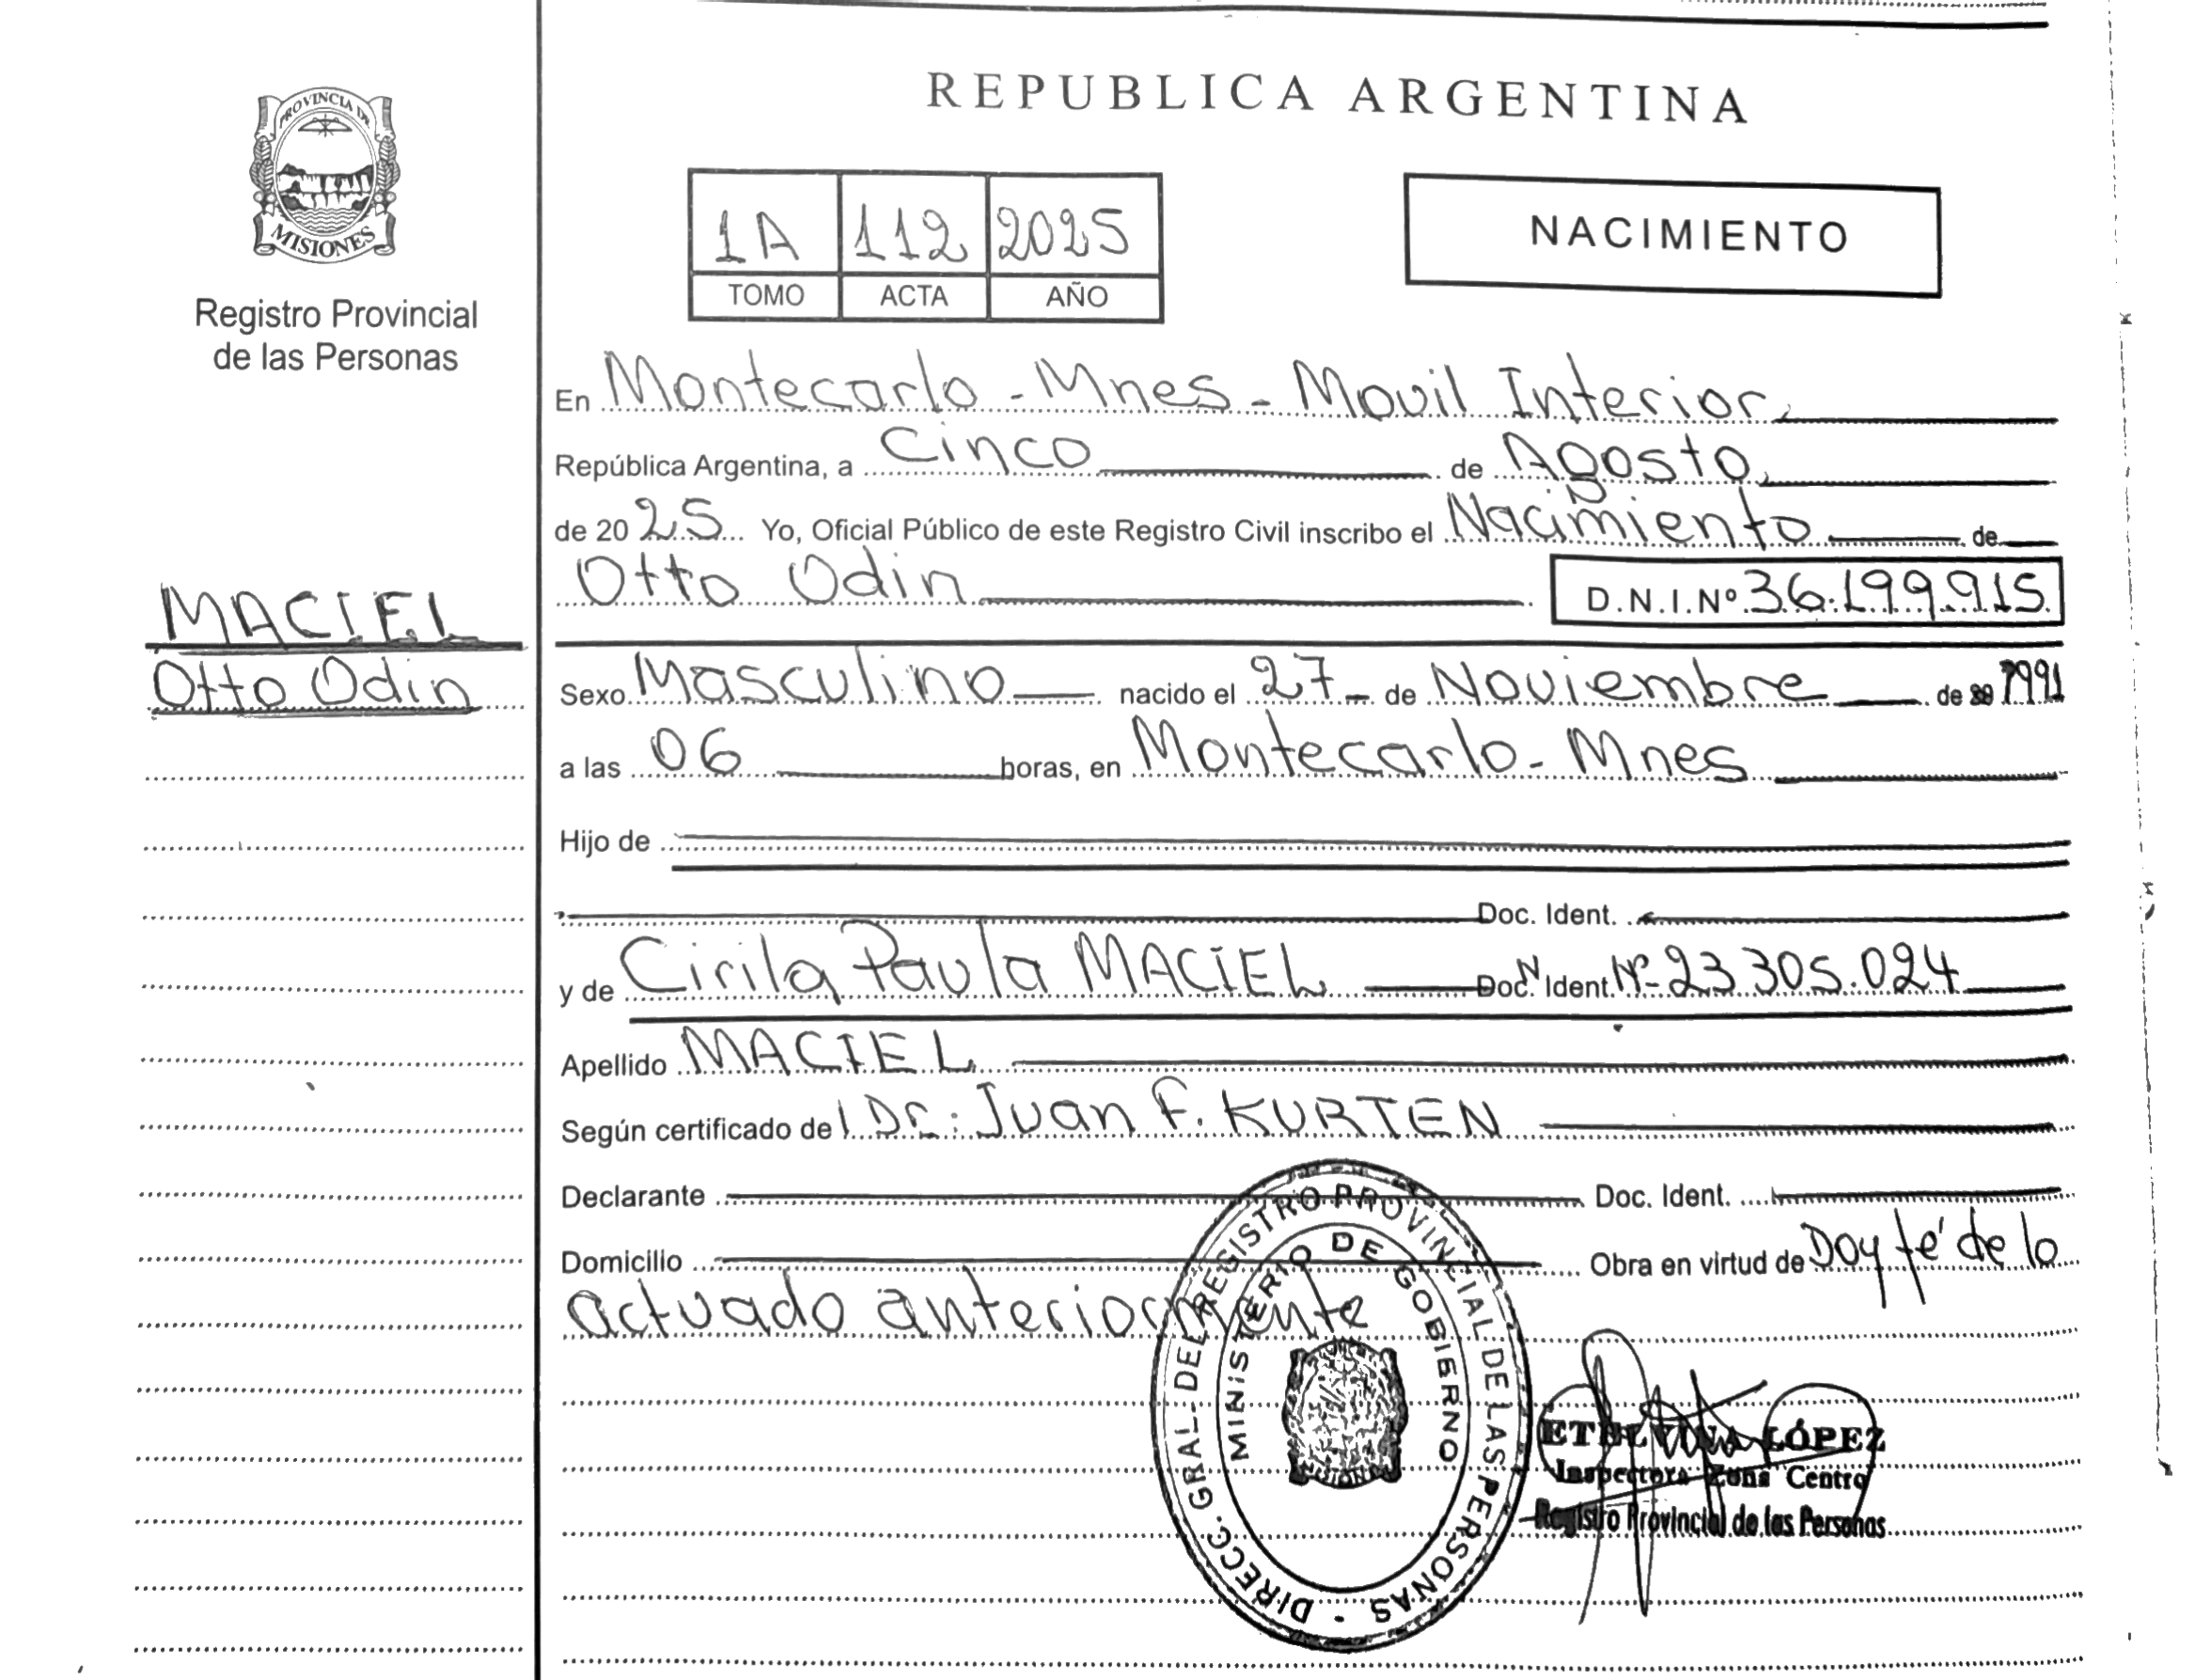 PROVINCIA DE
MISIONES
Registro Provincial
de las Personas
MACIEL
Otto Odin
REPUBLICA ARGENTINA
1A 112 2025
TOMO ACTA AÑO
NACIMIENTO
En Montecarlo - Mnes - Movil Interior,
República Argentina, a Cinco de Agosto,
de 2025 Yo, Oficial Público de este Registro Civil inscribo el Nacimiento de
Otto Odin D.N.I.Nº 36.199.915
Sexo Masculino nacido el 27 de Noviembre de 1991
a las 06 horas, en Montecarlo - Mnes
Hijo de
Doc. Ident.
y de Cirila Paula MACIEL Doc. Ident. Nº 23.305.024
Apellido MACIEL
Según certificado del Dr: Juan F. KURTEN
Declarante Doc. Ident.
Domicilio Obra en virtud de Doy fé de lo
actuado anteriormente
DIRECC. GRAL. DEL REGISTRO PROVINCIAL DE LAS PERSONAS
MINISTERIO DE GOBIERNO
ETELVINA LÓPEZ
Inspectora Zona Centro
Registro Provincial de las Personas